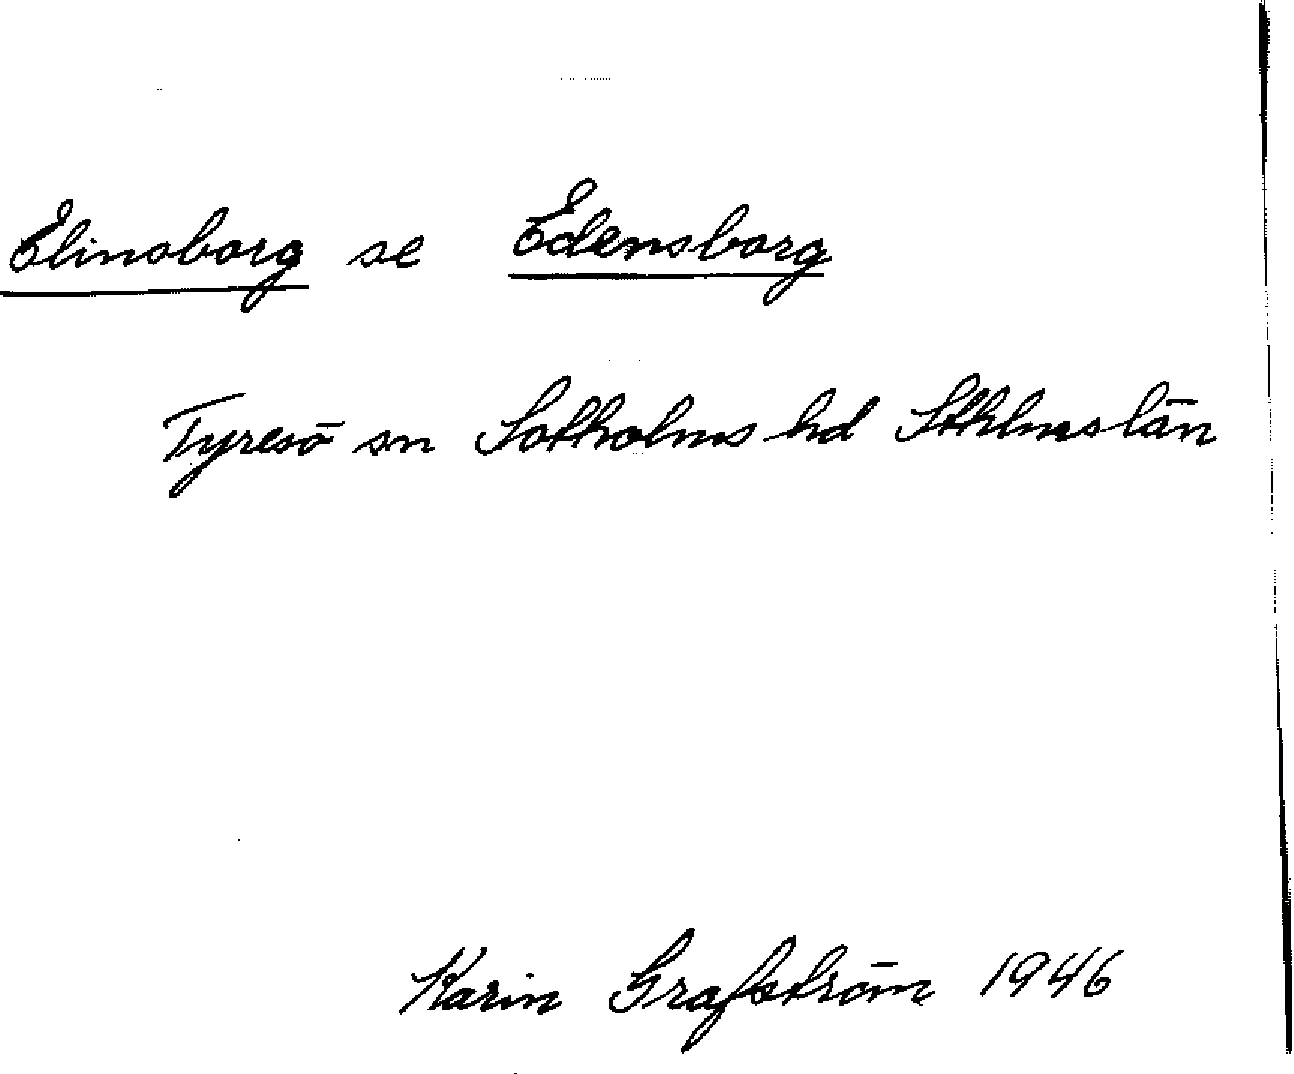 Elinsborg se Edensborg
Tyresö sn Sotholms hd Sthlms län
Karin Grafström 1946